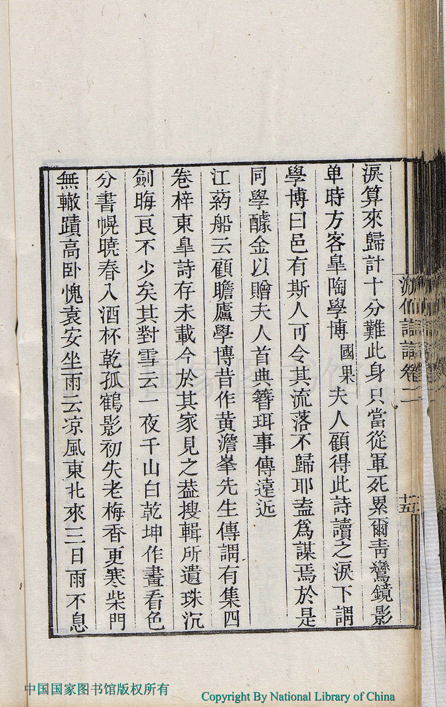 淚算來歸計十分難此身只當從軍死累爾青鸞鏡影
单時方客皐陶學博國果夫人顧得此詩讀之淚下謂
學博曰邑有斯人可令其流落不歸耶盍爲謀焉於是
同學醵金以贈夫人首典簪珥事傳遠近
江葯船云顧瞻廬學博昔作黃澹峯先生傳謂有集四
卷梓東皐詩存未載今於其家見之葢搜輯所遺珠沉
劍晦良不少矣其對雪云一夜千山白乾坤作晝看色
分書幌曉春入酒杯乾孤鶴影初失老梅香更寒柴門
無轍蹟高卧愧袁安坐雨云凉風東北來三日雨不息
詩話卷二
十五
中国国家图书馆版权所有
Copyright By National Library of China